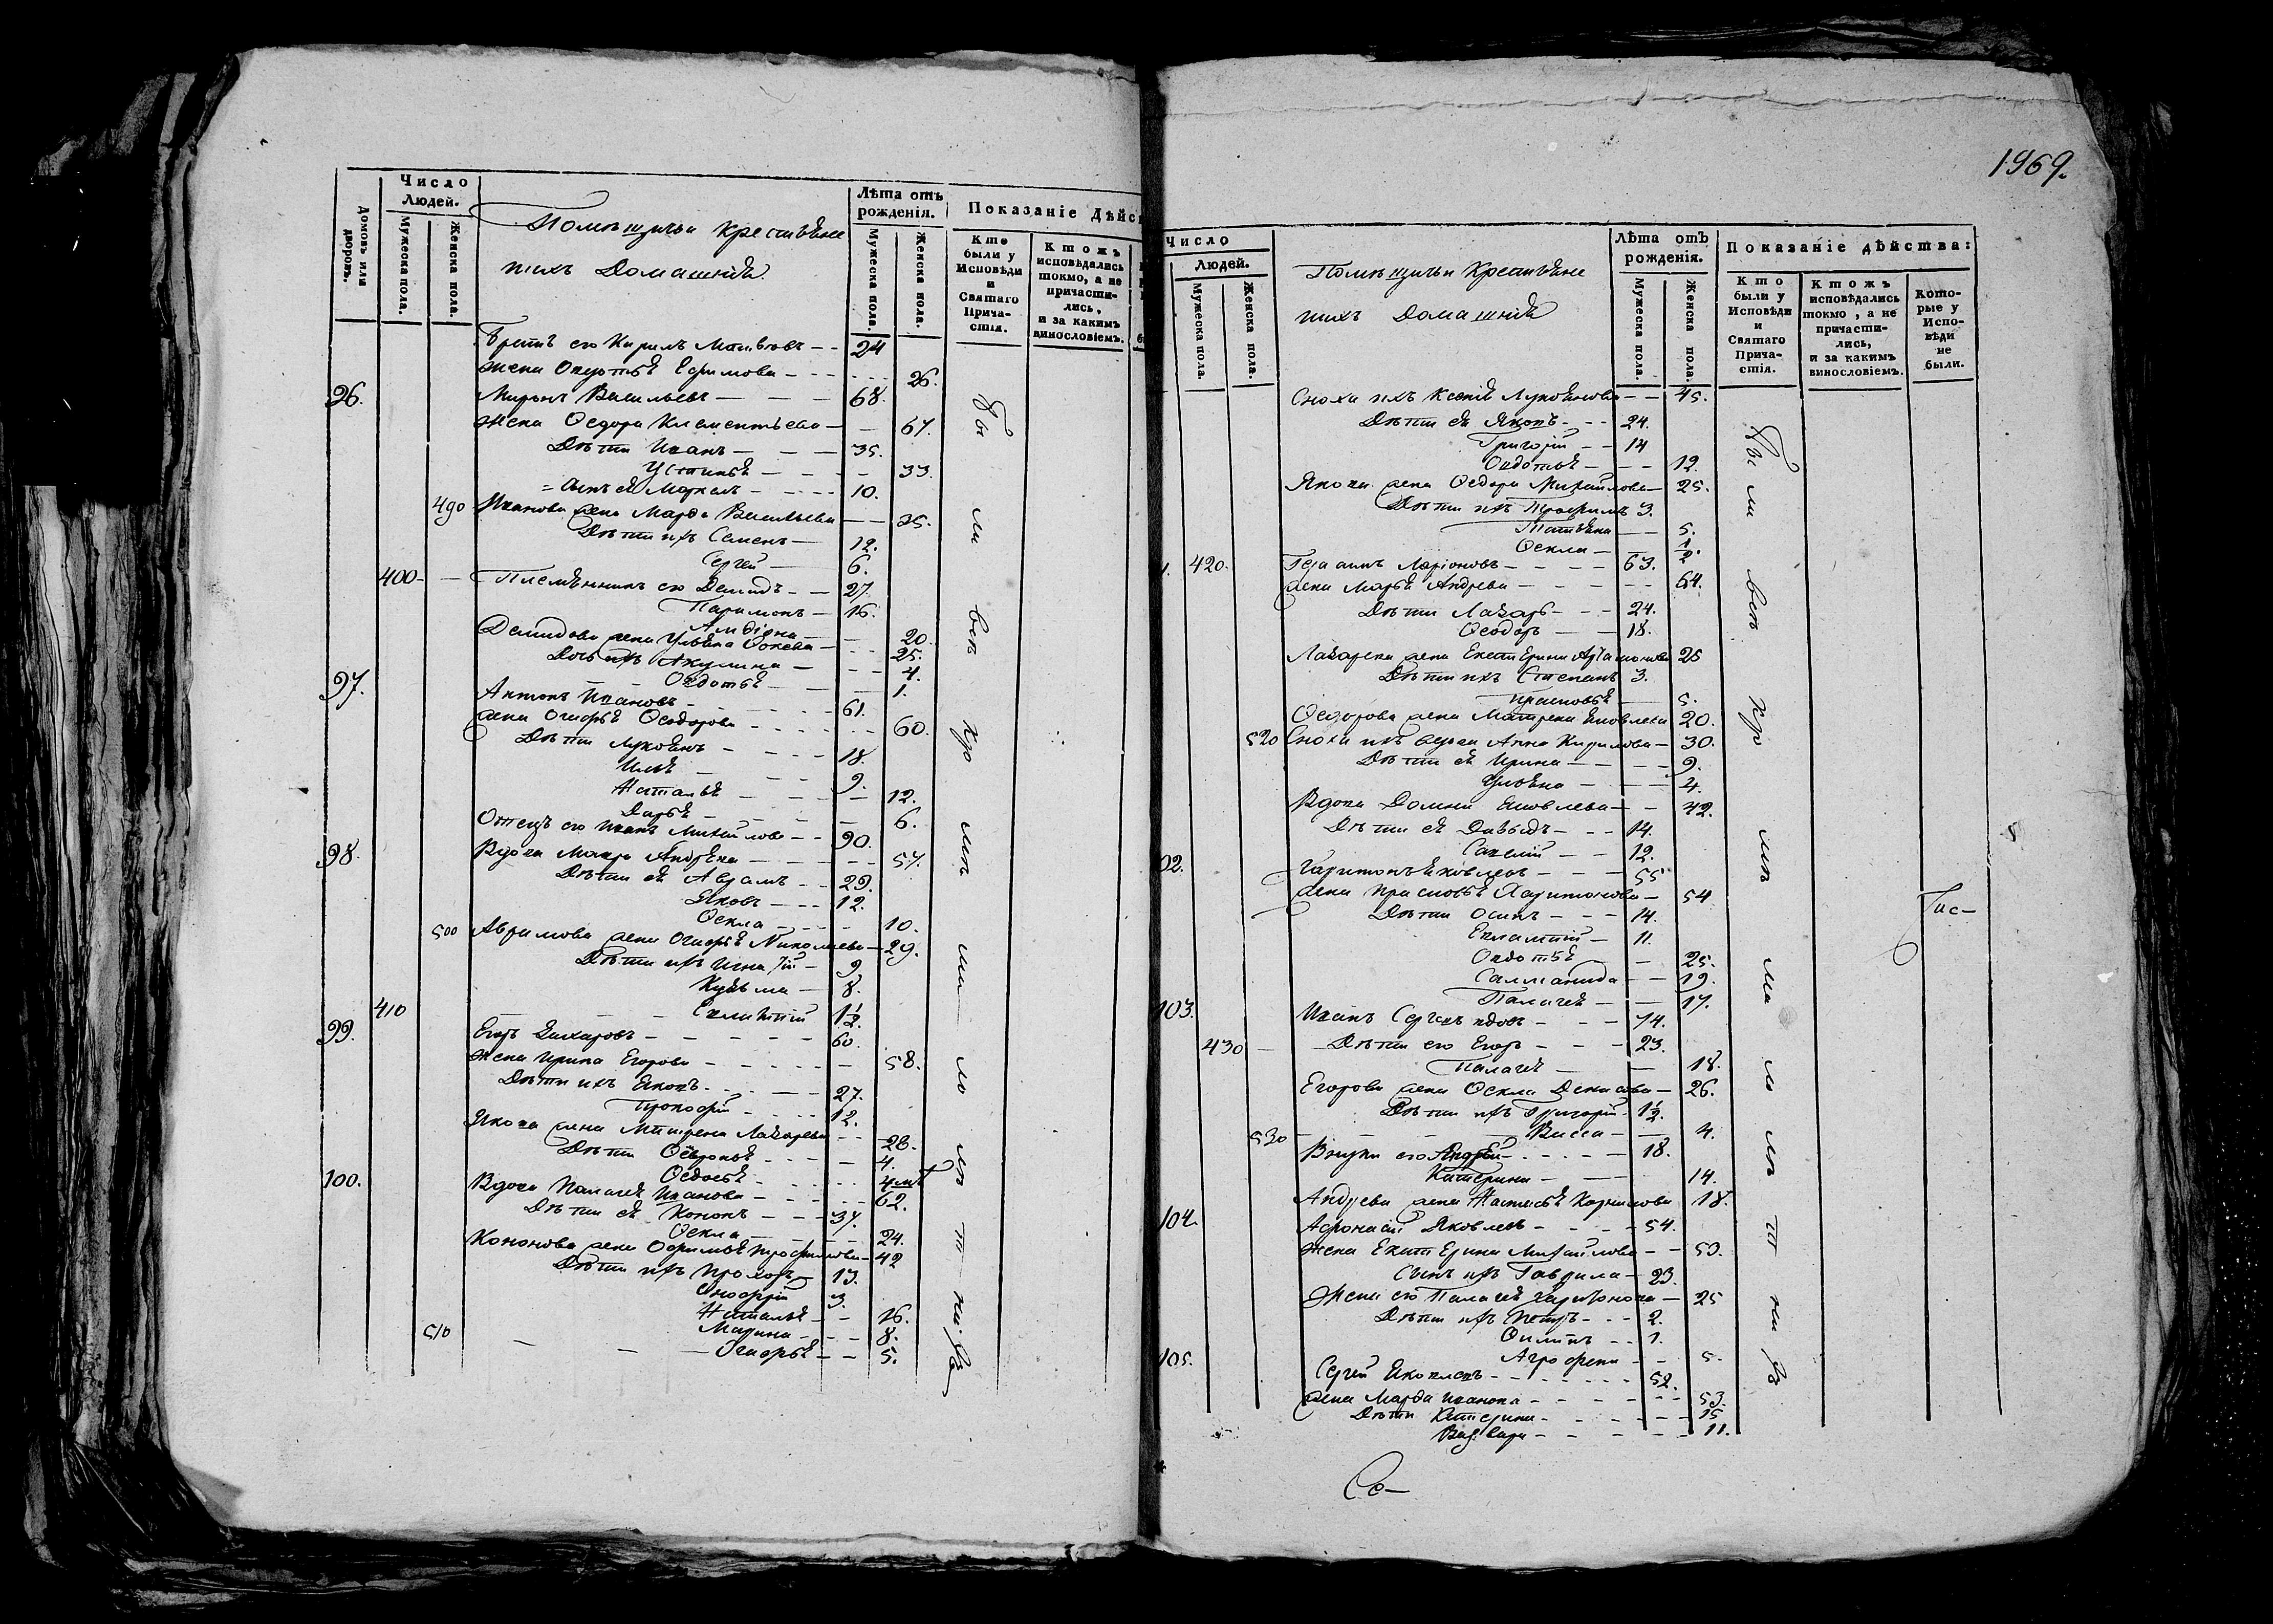 Число Людей.
Домовъ или дворовъ.
Мужеска пола.
Женска пола.
Помѣщичьи крестьѣне
ихъ Домашніѣ
Лѣта отъ рожденія.
Мужеска пола.
Женска пола.
Показаніе Дѣйс
Кто были у Исповѣди и Святаго Причастія.
Ктожъ исповѣдались токмо, а не причастились, и за какимъ винословіемъ.
Братъ его Кирилъ Матвѣевъ 24
Жена Овдотьѣ Ефимова 26.
96. Миронъ Васильевъ 68.
Жена Ѳедора Клементьева 67.
Дѣти Иванъ 35.
Устиньѣ 33.
Сынъ еѣ Маркелъ 10.
490 Иванова жена Марѳа Васильева 35.
Дѣти ихъ Семенъ 12.
Сергей 6.
400 Племѣнникъ его Демидъ 27.
Парамонъ 16.
20.
Демидова жена Ульѣна 25.
Дочь ихъ Акулина 4.
Овдотьѣ 1.
97. Антонъ Ивановъ 61.
жена Огафьѣ Ѳеодорова 60.
Дѣти Лукоѣнъ 18.
Ильѣ 9.
Натальѣ 12.
Дарьѣ 6.
Отецъ его Иванъ Михайловъ 90.
98. Вдова Мавра Андрѣева 57.
Дѣти еѣ Аврамъ 29.
Яковъ 12.
Ѳекла 10.
500 Аврамова жена Огафьѣ Николаева 29.
Дѣти ихъ Игнатій 9.
Кузьма 8.
410 Евлампій 1½
99. Егоръ Захаровъ 60.
Жена Ирина Егорова 58.
Дѣти ихъ Яковъ 27.
Прокофій 12.
Якова жена Матрена Лазарева 28.
Дѣти Ѳевроньѣ 4.
Ѳедосьѣ
100. Вдова Палагеѣ Иванова 62.
Дѣти еѣ Кононъ 37.
Ѳекла 24.
Кононова жена Офимьѣ Трофимова 42
Дѣти ихъ Прохоръ 13.
Оноѳрій 3.
Натальѣ 16.
Марина 8.
510 Огафьѣ 5.
Бы ли всѣ кро мѣ ма ло лѣ т ни хъ
1969.
Число Людей.
Мужеска пола.
Женска пола.
Помѣщичьи Крестьѣне
ихъ Домашніѣ
Лѣта отъ рожденія.
Мужеска пола.
Женска пола.
Показаніе дѣйства:
Кто были у Исповѣди и Святаго Причастія.
Ктожъ исповѣдались токмо, а не причастились, и за какимъ винословіемъ.
Которые у Исповѣди не были.
Сноха ихъ Ксеніѣ Лукоѣнова 45.
Дѣти еѣ Яковъ 24.
Григорій 14
Овдотьѣ 12.
Якова жена Ѳедора Михайлова 25.
Дѣти ихъ Трофимъ 3.
Татьѣна 5.
Ѳекла ½.
420. Герасимъ Ларіоновъ 63.
жена Марьѣ Андрева 64.
Дѣти Лазарь 24.
Ѳеодоръ 18.
Лазарева жена Екатерина Артамонова 25
Дѣти ихъ Степанъ 3.
Прасковьѣ 5.
Ѳедорова жена Матрена Яковлева 20.
520 Сноха ихъ вдова Анна Кирилова 30.
Дѣти еѣ Ирина 9.
Ульѣна 4.
Вдова Домна Яковлева 42.
Дѣти еѣ Давыдъ 14.
Савелій 12.
02. Харитонъ Яковлевъ 55
жена Прасковьѣ Харитонова 54
Дѣти Осипъ 14.
Евлампій 11.
Овдотьѣ 25.
Саломанида 19.
Палагеѣ 17.
103. Иванъ Сергевъ вдовъ 74.
430 Дѣти его Егоръ 23.
Палагеѣ 18.
Егорова жена Ѳекла Денисова 26.
Дѣти ихъ Григорій 1½.
530 Васса 4.
Внуки его Андрей 18.
Катерина 14.
Андрева жена Настасьѣ 18.
104. Афонасій Яковлевъ 54.
Жена Екатерина Михайлова 50.
Сынъ ихъ Гаврила 23.
Жена его Палагеѣ Харитонова 25
Дѣти ихъ Петръ 2.
Филипъ 1.
Аграфена 5.
105. Сергей Яковлевъ 52.
жена Марѳа Иванова 53.
Дѣти Катерина 15
Варвара 11.
Бы ли всѣ кро мѣ ма ло лѣ т ни хъ
Тис-
Се-